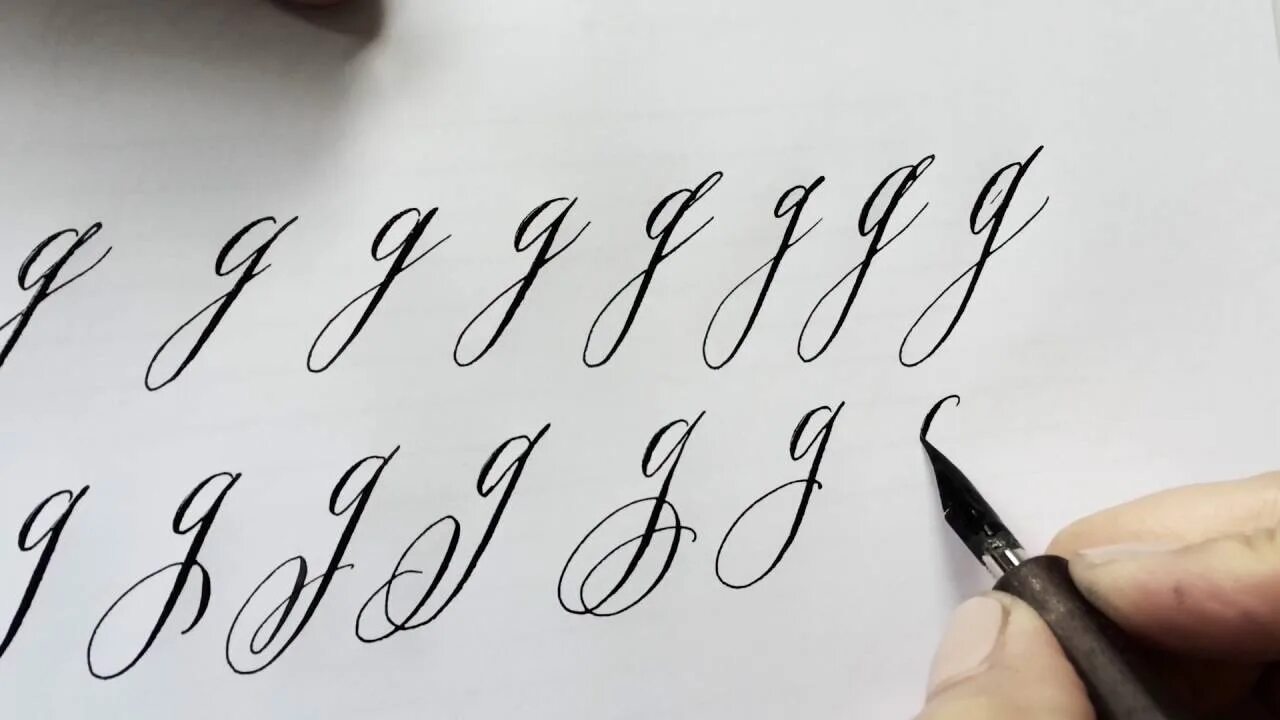 g g g g g g g g
g g g g g g g